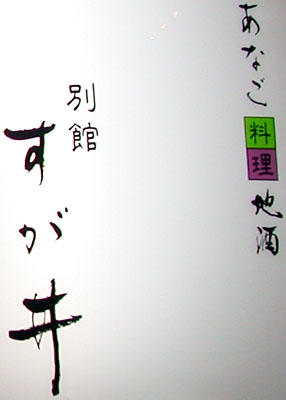 あなご料理地酒
別館
すが井